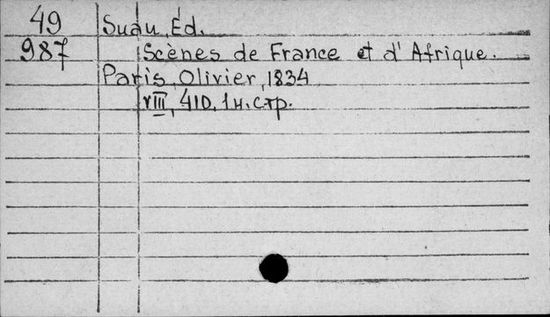 49 Suau, Ed.
987 Scènes de France et d'Afrique.
Paris, Olivier, 1834
VIII, 410, 1 н. стр.